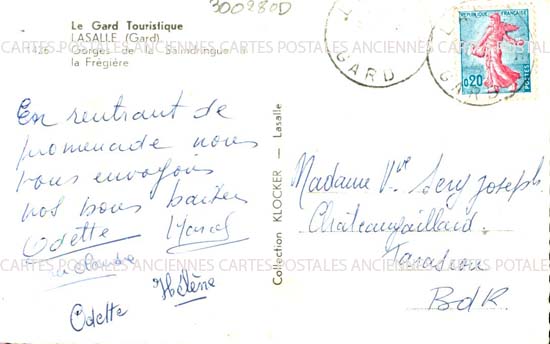 300980D
Le Gard Touristique
LASALLE (Gard)
Gorges de la Salndringue
la Frégière
GARD
GARD
REPUBLIQUE FRANÇAISE
0,20
POSTES
CARTES POSTALES ANCIENNES CARTES POSTALES ANCIENNES CARTES POSTALES
En rentrant de
promenade nous
vous envoyons
nos bons baisers
Odette Marcel
Claudre
Odette Hélène
Collection KLOCKER — Lasalle
Madame Vve Joseph
Châteaugaillard
Tarascon
BdR